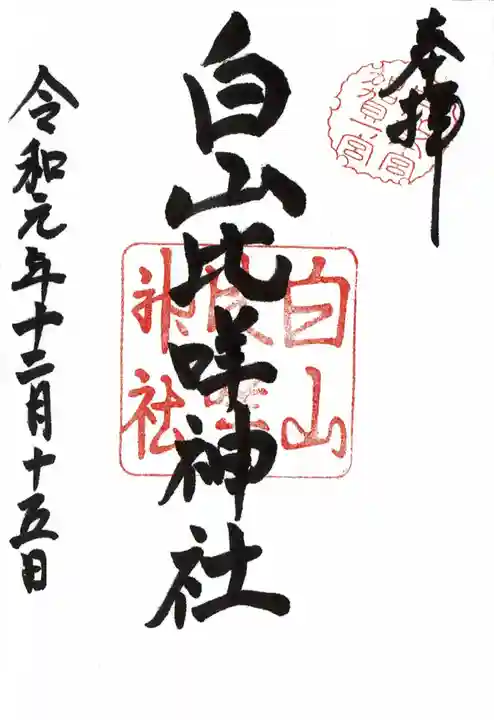 奉拝
加賀一宮
白山比咩神社
白山
神社
令和元年十二月十五日